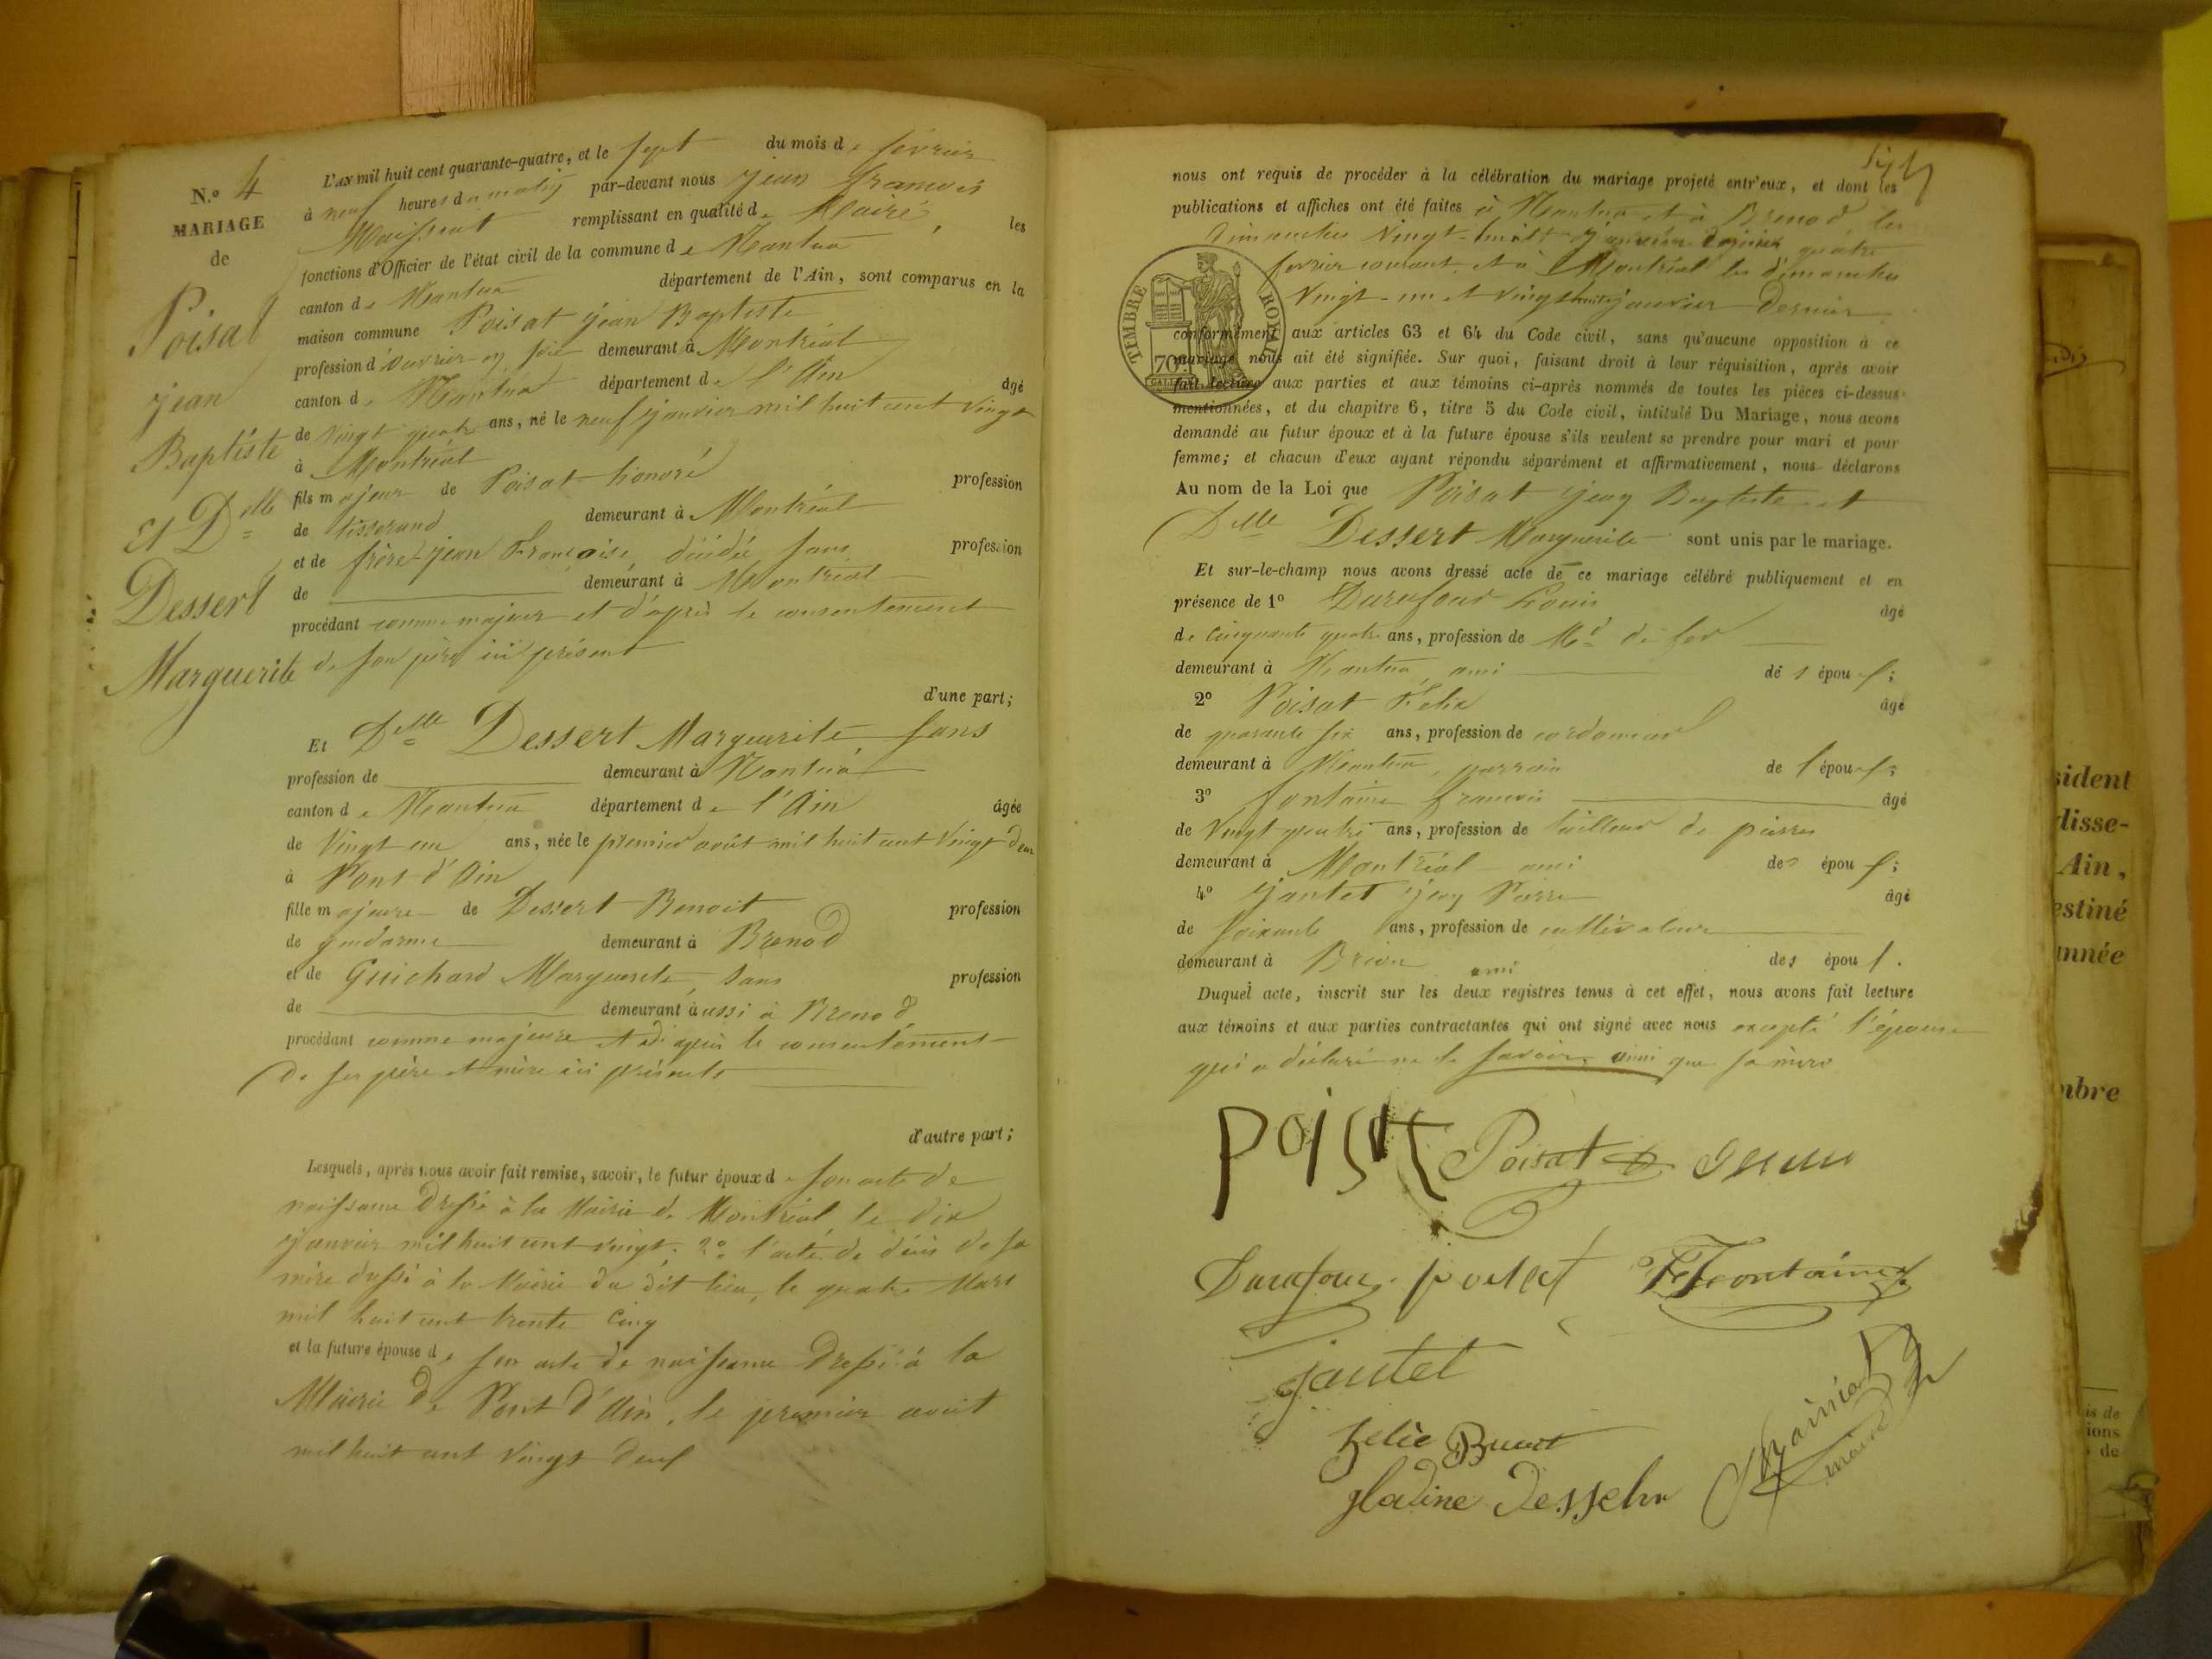 N.º 4
MARIAGE
de
Poisat
jean
Baptiste
et Dlle
Dessert
Marguerite
L'AN mil huit cent quarante-quatre, et le sept du mois de février
à neuf heures du matin par-devant nous jean françois
remplissant en qualité de Maire, les
fonctions d'Officier de l'état civil de la commune de Nantua
canton de Nantua département de l'Ain, sont comparus en la
maison commune Poisat jean Baptiste
profession d'ouvrier en soie demeurant à Montréal
canton de Nantua département de l'Ain âgé
de vingt quatre ans, né le neuf janvier mil huit cent vingt
à Montréal
fils majeur de Poisat honoré profession
de tisserand demeurant à Montréal
et de frère-jean Françoise, décédée, sans profession
de demeurant à Montréal
procédant comme majeur et d'après le consentement
de son père ici présent
d'une part;
Et Dlle Dessert Marguerite, sans
profession de demeurant à Nantua
canton de Nantua département de l'Ain âgée
de vingt un ans, née le premier août mil huit cent vingt deux
à Pont d'Ain
fille majeure de Dessert Benoit profession
de gendarme demeurant à Brenod
et de Guichard Marguerite, sans profession
de demeurant aussi à Brenod
procédant comme majeure et d'après le consentement
de ses père et mère ici présents
d'autre part;
Lesquels, après nous avoir fait remise, savoir, le futur époux de son acte de
naissance dressé à la Mairie de Montréal, le dix
janvier mil huit cent vingt. 2º l'acte de décès de sa
mère dressé à la Mairie du dit lieu, le quatre Mars
mil huit cent trente cinq
et la future épouse de son acte de naissance dressé à la
Mairie de Pont d'Ain, le premier août
mil huit cent vingt deux
nous ont requis de procéder à la célébration du mariage projeté entr'eux, et dont les
publications et affiches ont été faites à Nantua et à Brenod les
dimanches vingt-huit janvier dernier quatre
février courant, et à Montréal les dimanches
vingt-un et vingt huit janvier dernier
TIMBRE ROYAL
70c
conformément aux articles 63 et 64 du Code civil, sans qu'aucune opposition à ce
mariage nous ait été signifiée. Sur quoi, faisant droit à leur réquisition, après avoir
fait lecture aux parties et aux témoins ci-après nommés de toutes les pièces ci-dessus
mentionnées, et du chapitre 6, titre 5 du Code civil, intitulé Du Mariage, nous avons
demandé au futur époux et à la future épouse s'ils veulent se prendre pour mari et pour
femme; et chacun d'eux ayant répondu séparément et affirmativement, nous déclarons
Au nom de la Loi que Poisat jean Baptiste et
Dlle Dessert Marguerite sont unis par le mariage.
Et sur-le-champ nous avons dressé acte de ce mariage célébré publiquement et en
présence de 1º Durafour Louis âgé
de cinquante quatre ans, profession de Md de fer
demeurant à Nantua, ami des époux;
2º Poisat Felix âgé
de quarante six ans, profession de cordonnier
demeurant à Nantua, parrain de l'époux;
3º fontaine françois âgé
de vingt quatre ans, profession de tailleur de pierres
demeurant à Montréal ami des époux;
4º jantet jean Pierre âgé
de soixante ans, profession de cultivateur
demeurant à Brion ami des époux.
Duquel acte, inscrit sur les deux registres tenus à cet effet, nous avons fait lecture
aux témoins et aux parties contractantes qui ont signé avec nous excepté l'épouse
qui a déclaré ne le savoir, ainsi que sa mère
POISAT Poisat
Durafour. poisat F fontaine
jantet
Zelie
maire
sident
disse-
Ain,
estiné
année
mbre
is de
ions
de